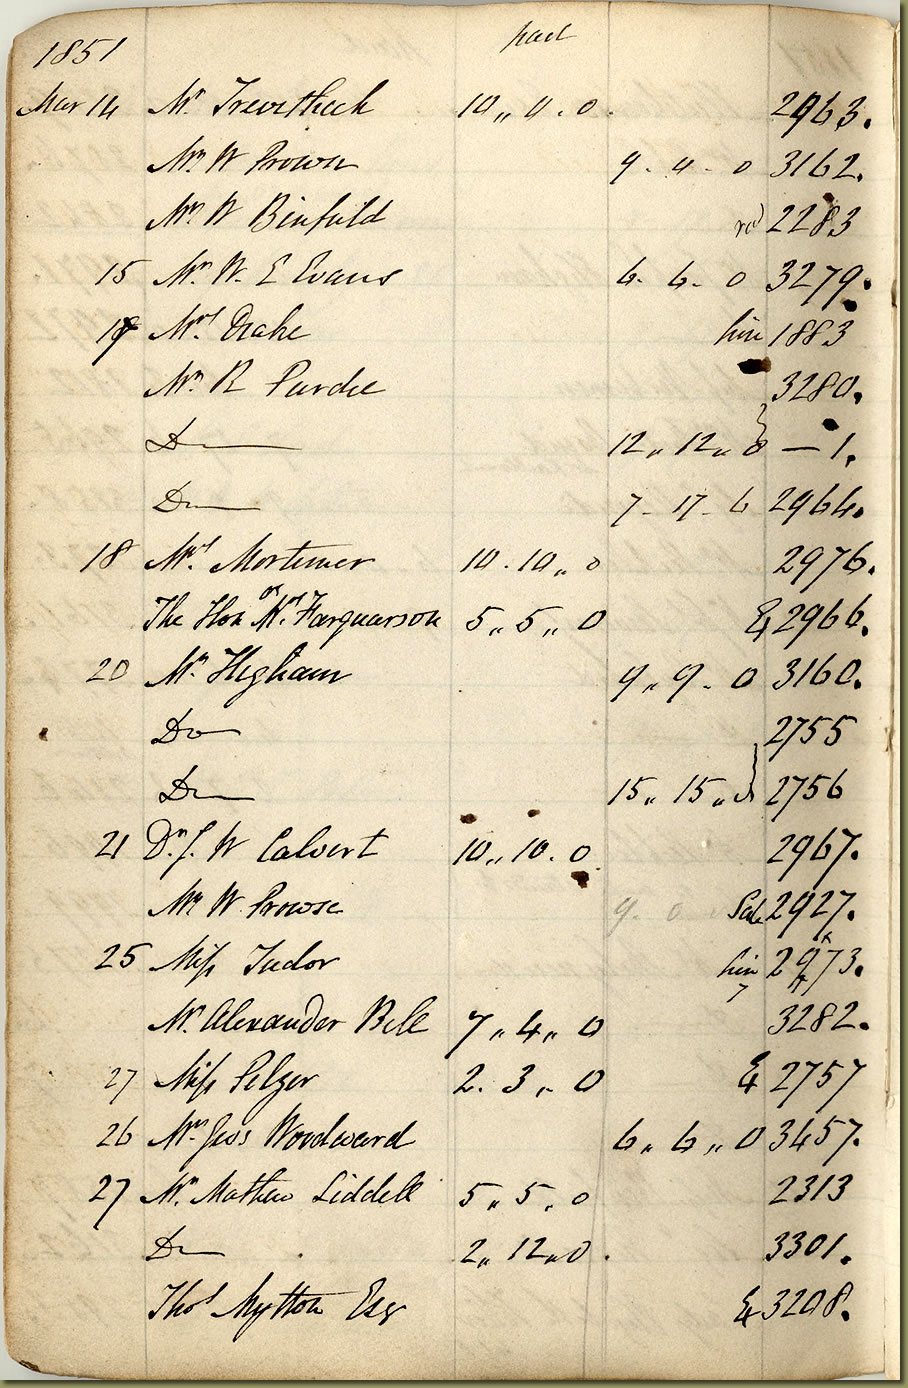 1851 paid
Mar 14 Mr Trevethack 10 ,, 0 . 0 . 2963.
Mr W Prowse 9 - 0 - 0 3162.
Mr W Binfield 2283
15 Mr W. E Evans 6 - 6 - 0 3279.
19 Mrs Drake hire 1883
Mr R Purdie 3280.
Do 12 ,, 12 ,, 0 — 1.
Do 7 - 17 - 6 2964.
18 Mrs Mortimer 10 . 10 ,, 0 2976.
The Hon Mrs Farquarson 5 ,, 5 ,, 0 & 2966.
20 Mr Higham 9 ,, 9 - 0 3160.
Do 2755
Do 15 ,, 15 ,, 0 2756
21 Dr J. W Calvert 10 ,, 10 . 0 2967.
Mr W Prowse Sale 2927.
25 Miss Tudor hire 2973.
Mr Alexander Bell 7 ,, 4 ,, 0 3282.
27 Miss Pelzer 2 . 3 ,, 0 & 2757
26 Mr Jas Woodward 6 ,, 6 ,, 0 3457.
27 Mr Mathew Liddell 5 ,, 5 ,, 0 2313
Do 2 ,, 12 ,, 0 . 3301.
Thos Mytton Esq & 3208.